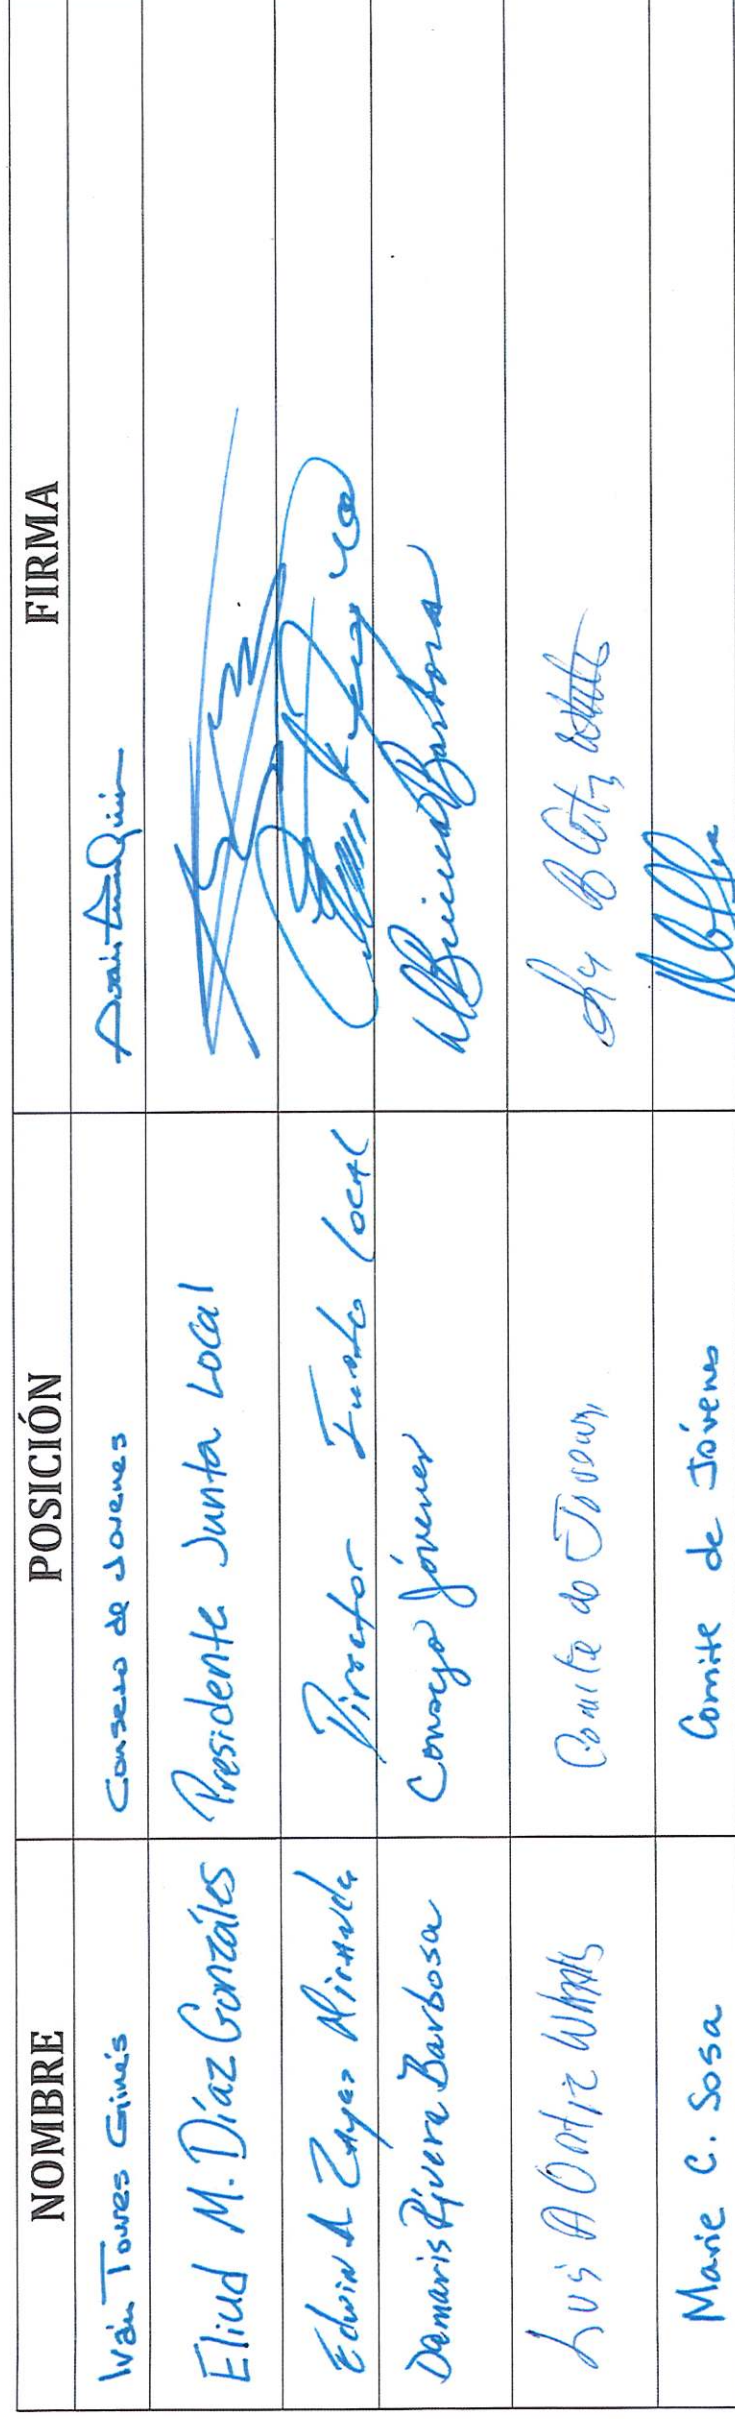 NOMBRE POSICIÓN FIRMA
Iván Torres Ginés Consejo de Jovenes
Eliud M. Díaz Gonzáles Presidente Junta Local
Edwin A Zayas Miranda Director Junta Local
Damaris Rivera Barbosa Consejo Jóvenes Barbosa
Luis A Ortiz Comite de
Marie C. Sosa Comite de Jóvenes